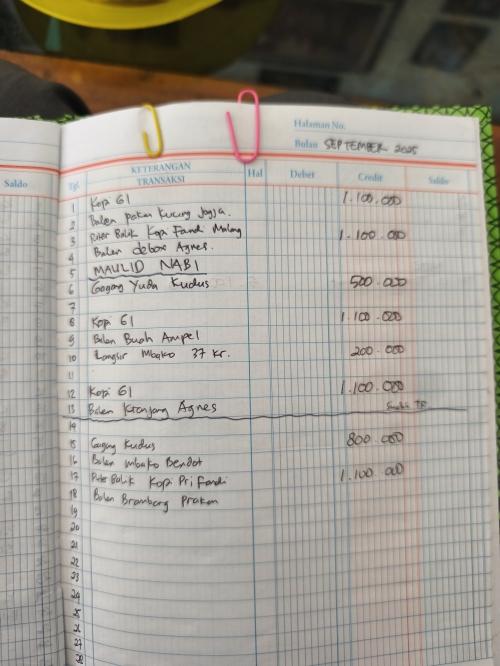 Halaman No.
Bulan SEPTEMBER 2025
Saldo Tgl. KETERANGAN TRANSAKSI Hal Debet Credit Saldo
1 Kopi 61 1.100.000
2 Balen pakan kucing Jogja.
3 Puter Balik Kopi Fandi Malang 1.100.000
4 Balen debox Agnes.
5 MAULID NABI
6 Gagang Yuda Kudus 500.000
7
8 Kopi 61 1.100.000
9 Balen Buah Ampel
10 Langsir Mbako 37 Kr. 200.000
11
12 Kopi 61 1.100.000
13 Balen Kranjang Agnes Sudah TF
14
15 Gagang Kudus 800.000
16 Balen Mbako Bendot
17 Puter Balik Kopi Pri Fandi 1.100.000
18 Balen Brambang Prakan
19
20
21
22
23
24
25
26
27
28